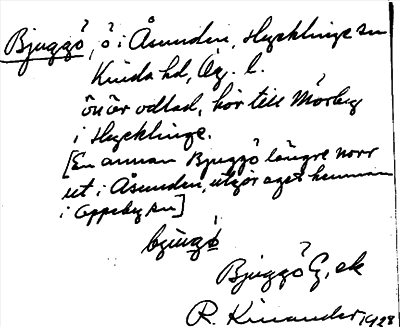 Bjuggö, ö i Åsunden, Hycklinge sn
Kinda hd, Ög. l.
Ön är odlad, hör till Mörby
i Hycklinge.
[En annan Bjuggö längre norr
ut i Åsunden, utgör eget hemman
i Oppeby sn]
bjùgö́
Bjuggö G, ek
R. Kinander 1928